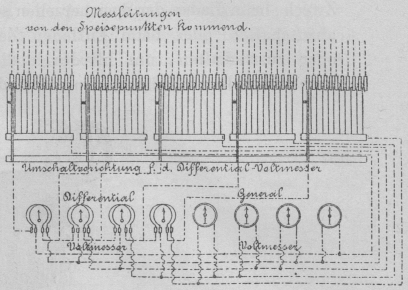 Messleitungen
von den Speisepunkten kommend.
Umschaltvorrichtung f. d. Differential-Voltmesser
Differential General
Voltmesser Voltmesser